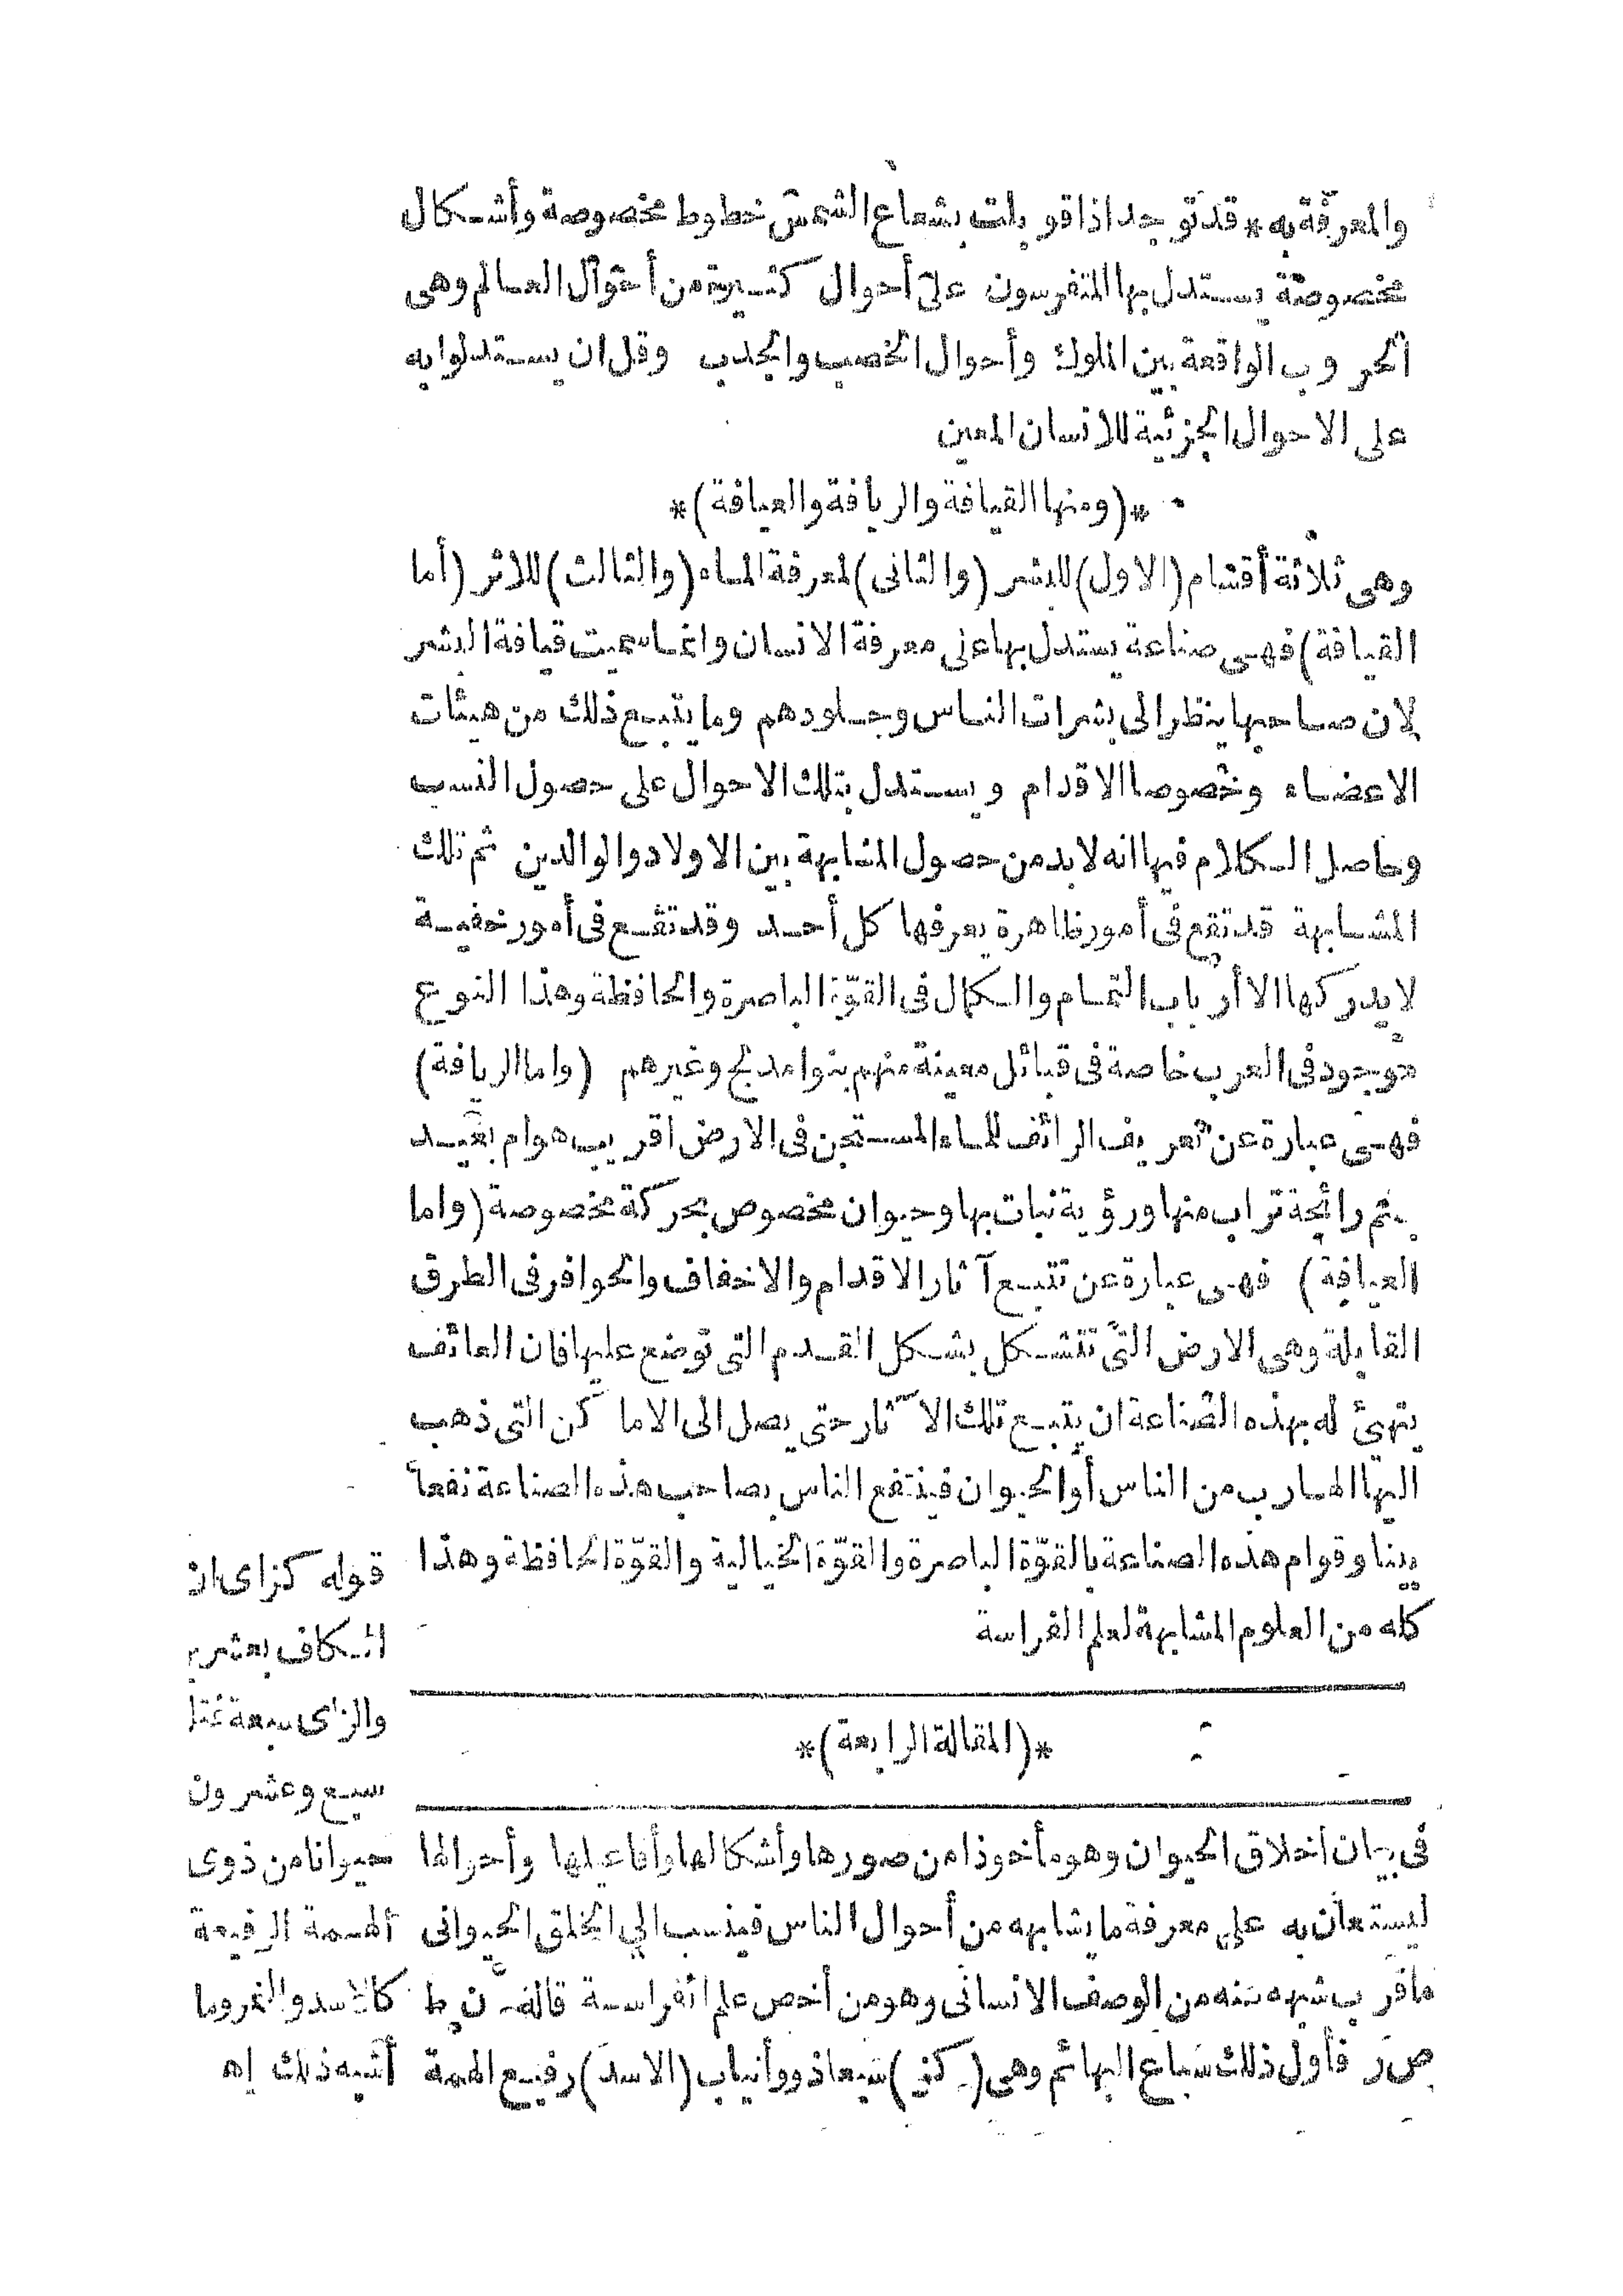 والمعرفة به * قد توجد اذا قوبلت بشعاع الشمس خطوط مخصوصة وأشكال
مخصوصة يستدل بها المتفرسون على أحوال كثيرة من أحوال العالم وهى
الحروب الواقعة بين الملوك وأحوال الخصب والجدب وقل ان يستدلوا به
على الاحوال الجزئية للانسان المعين
*(ومنها القيافة والريافة والعيافة)*
وهى ثلاثة أقسام (الاول) للبشر (والثانى) لمعرفة الماء (والثالث) للاثر (أما
القيافة) فهى صناعة يستدل بها على معرفة الانسان وانما سميت قيافة البشر
لان صاحبها ينظر الى بشرات الناس وجلودهم وما يتبع ذلك من هيئات
الاعضاء وخصوصا الاقدام ويستدل بتلك الاحوال على حصول النسب
وحاصل الكلام فيها انه لا بد من حصول المشابهة بين الاولاد والوالدين ثم تلك
المشابهة قد تقع فى أمور ظاهرة يعرفها كل أحد وقد تقع فى أمور خفية
لا يدركها الا أرباب التمام والكمال فى القوّة الباصرة والحافظة وهذا النوع
موجود فى العرب خاصة فى قبائل معينة منهم بنو امدلج وغيرهم (واما الريافة)
فهى عبارة عن تعريف الرائف للماء المستجن فى الارض اقريب هو ام بعيد
بشم رائحة تراب منها ورؤية نبات بها وحيوان مخصوص بحركة مخصوصة (واما
العيافة) فهى عبارة عن تتبع آثار الاقدام والاخفاف والحوافر فى الطرق
القابلة وهى الارض التى تتشكل بشكل القدم التى توضع عليها فان العائف
يتهئ له بهذه الصناعة ان يتبع تلك الآثار حتى يصل الى الاماكن التى ذهب
اليها الهارب من الناس أو الحيوان فينتفع الناس بصاحب هذه الصناعة نفعا
بينا وقوام هذه الصناعة بالقوّة الباصرة والقوّة الخيالية والقوّة الحافظة وهذا
كله من العلوم المشابهة لعلم الفراسة
*(المقالة الرابعة)*
فى بيان أخلاق الحيوان وهو مأخوذ من صورها وأشكالها وأفاعيلها وأحوالها
ليستعان به على معرفة ما يشابهه من أحوال الناس فينسب الى الخلق الحيوانى
ما قرب شبهه منه من الوصف الانسانى وهو من أخص علم الفراسة قاله ن ط
ص ر فأول ذلك سباع البهائم وهى (كز) سبعا ذو وأنياب (الاسد) رفيع الهمة
قوله كز اى ان
الكاف بعشرين
والزاى سبعة
سبع وعشرون
حيوانا من ذوى
الهمة الرفيعة
كالاسد والنمر وما
أشبه ذلك اه